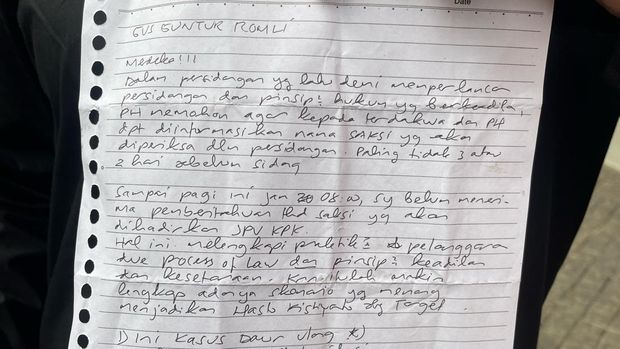 Date
GUS GUNTUR ROMLI
Merdeka!!!
Dalam persidangan yg lalu demi memperlancar
persidangan dan prinsip² hukum yg berkeadilan,
PH memohon agar kepada terdakwa dan PH
dpt diinformasikan nama SAKSI yg akan
diperiksa dlm persidangan. Paling tidak 3 atau
2 hari sebelum sidang
Sampai pagi ini jam 08.00, sy belum meneri-
ma pemberitahuan thd saksi yg akan
dihadirkan JPU KPK.
Hal ini melengkapi praktik² pelanggara
due process of law dan prinsip² keadilan
dan kesetaraan. Krn itulah makin
lengkap adanya skenario yg memang
menjadikan Hasto Kristiyato sbg Target.
1) Ini Kasus Daur Ulang